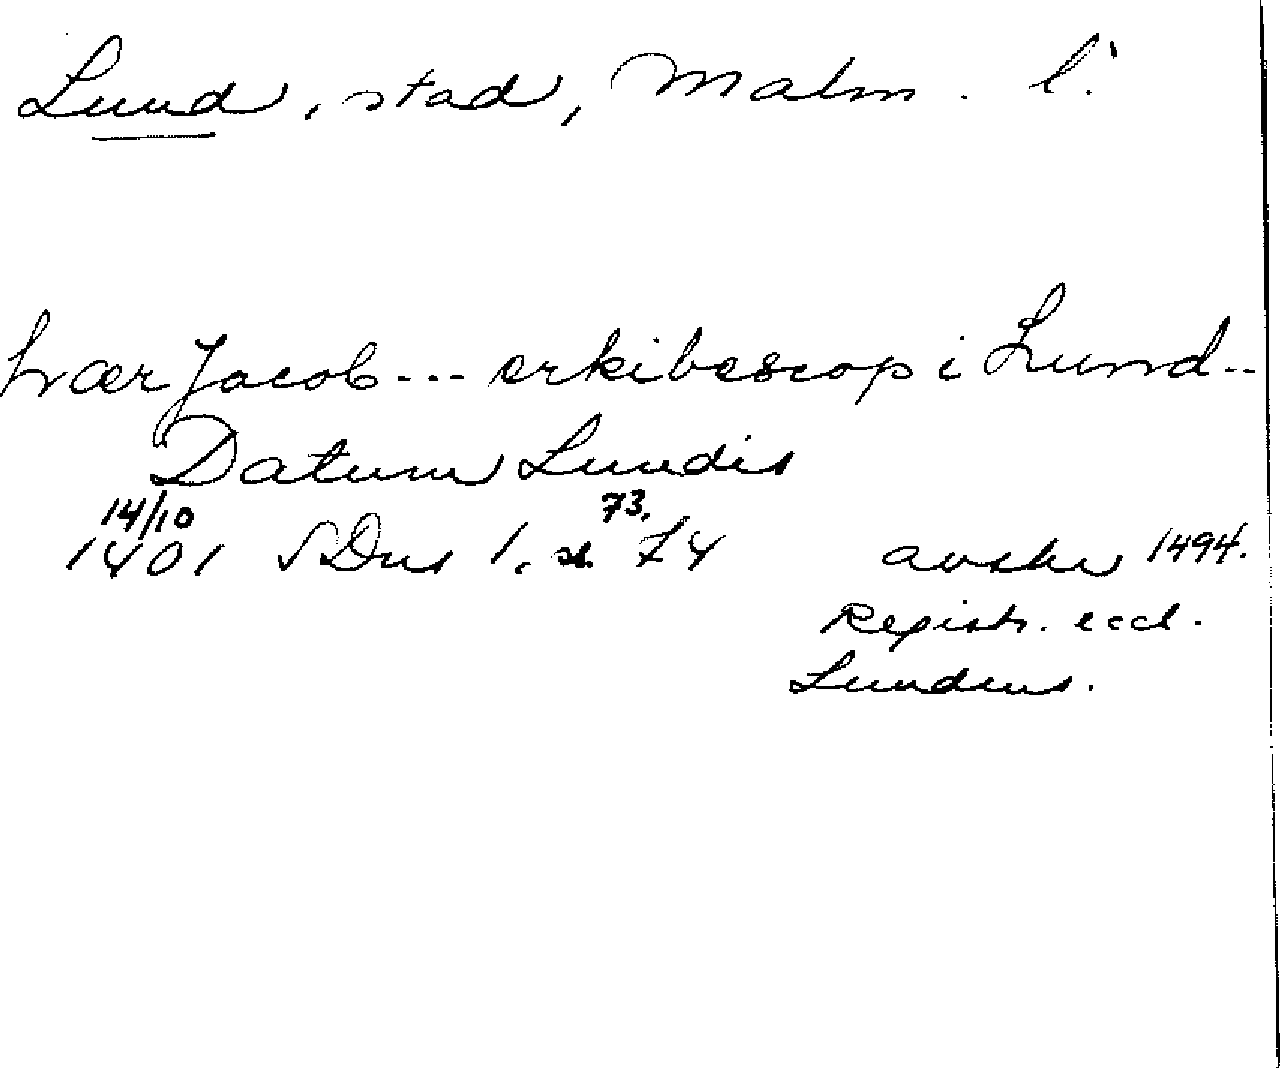 Lund, stad, Malm. l.
hær Jacob --- erkibescop i Lund --
Datum Lundis
14/10 73.
1401 SDns 1, s. 74 avskr 1494.
Registr. eccl.
Lundens.